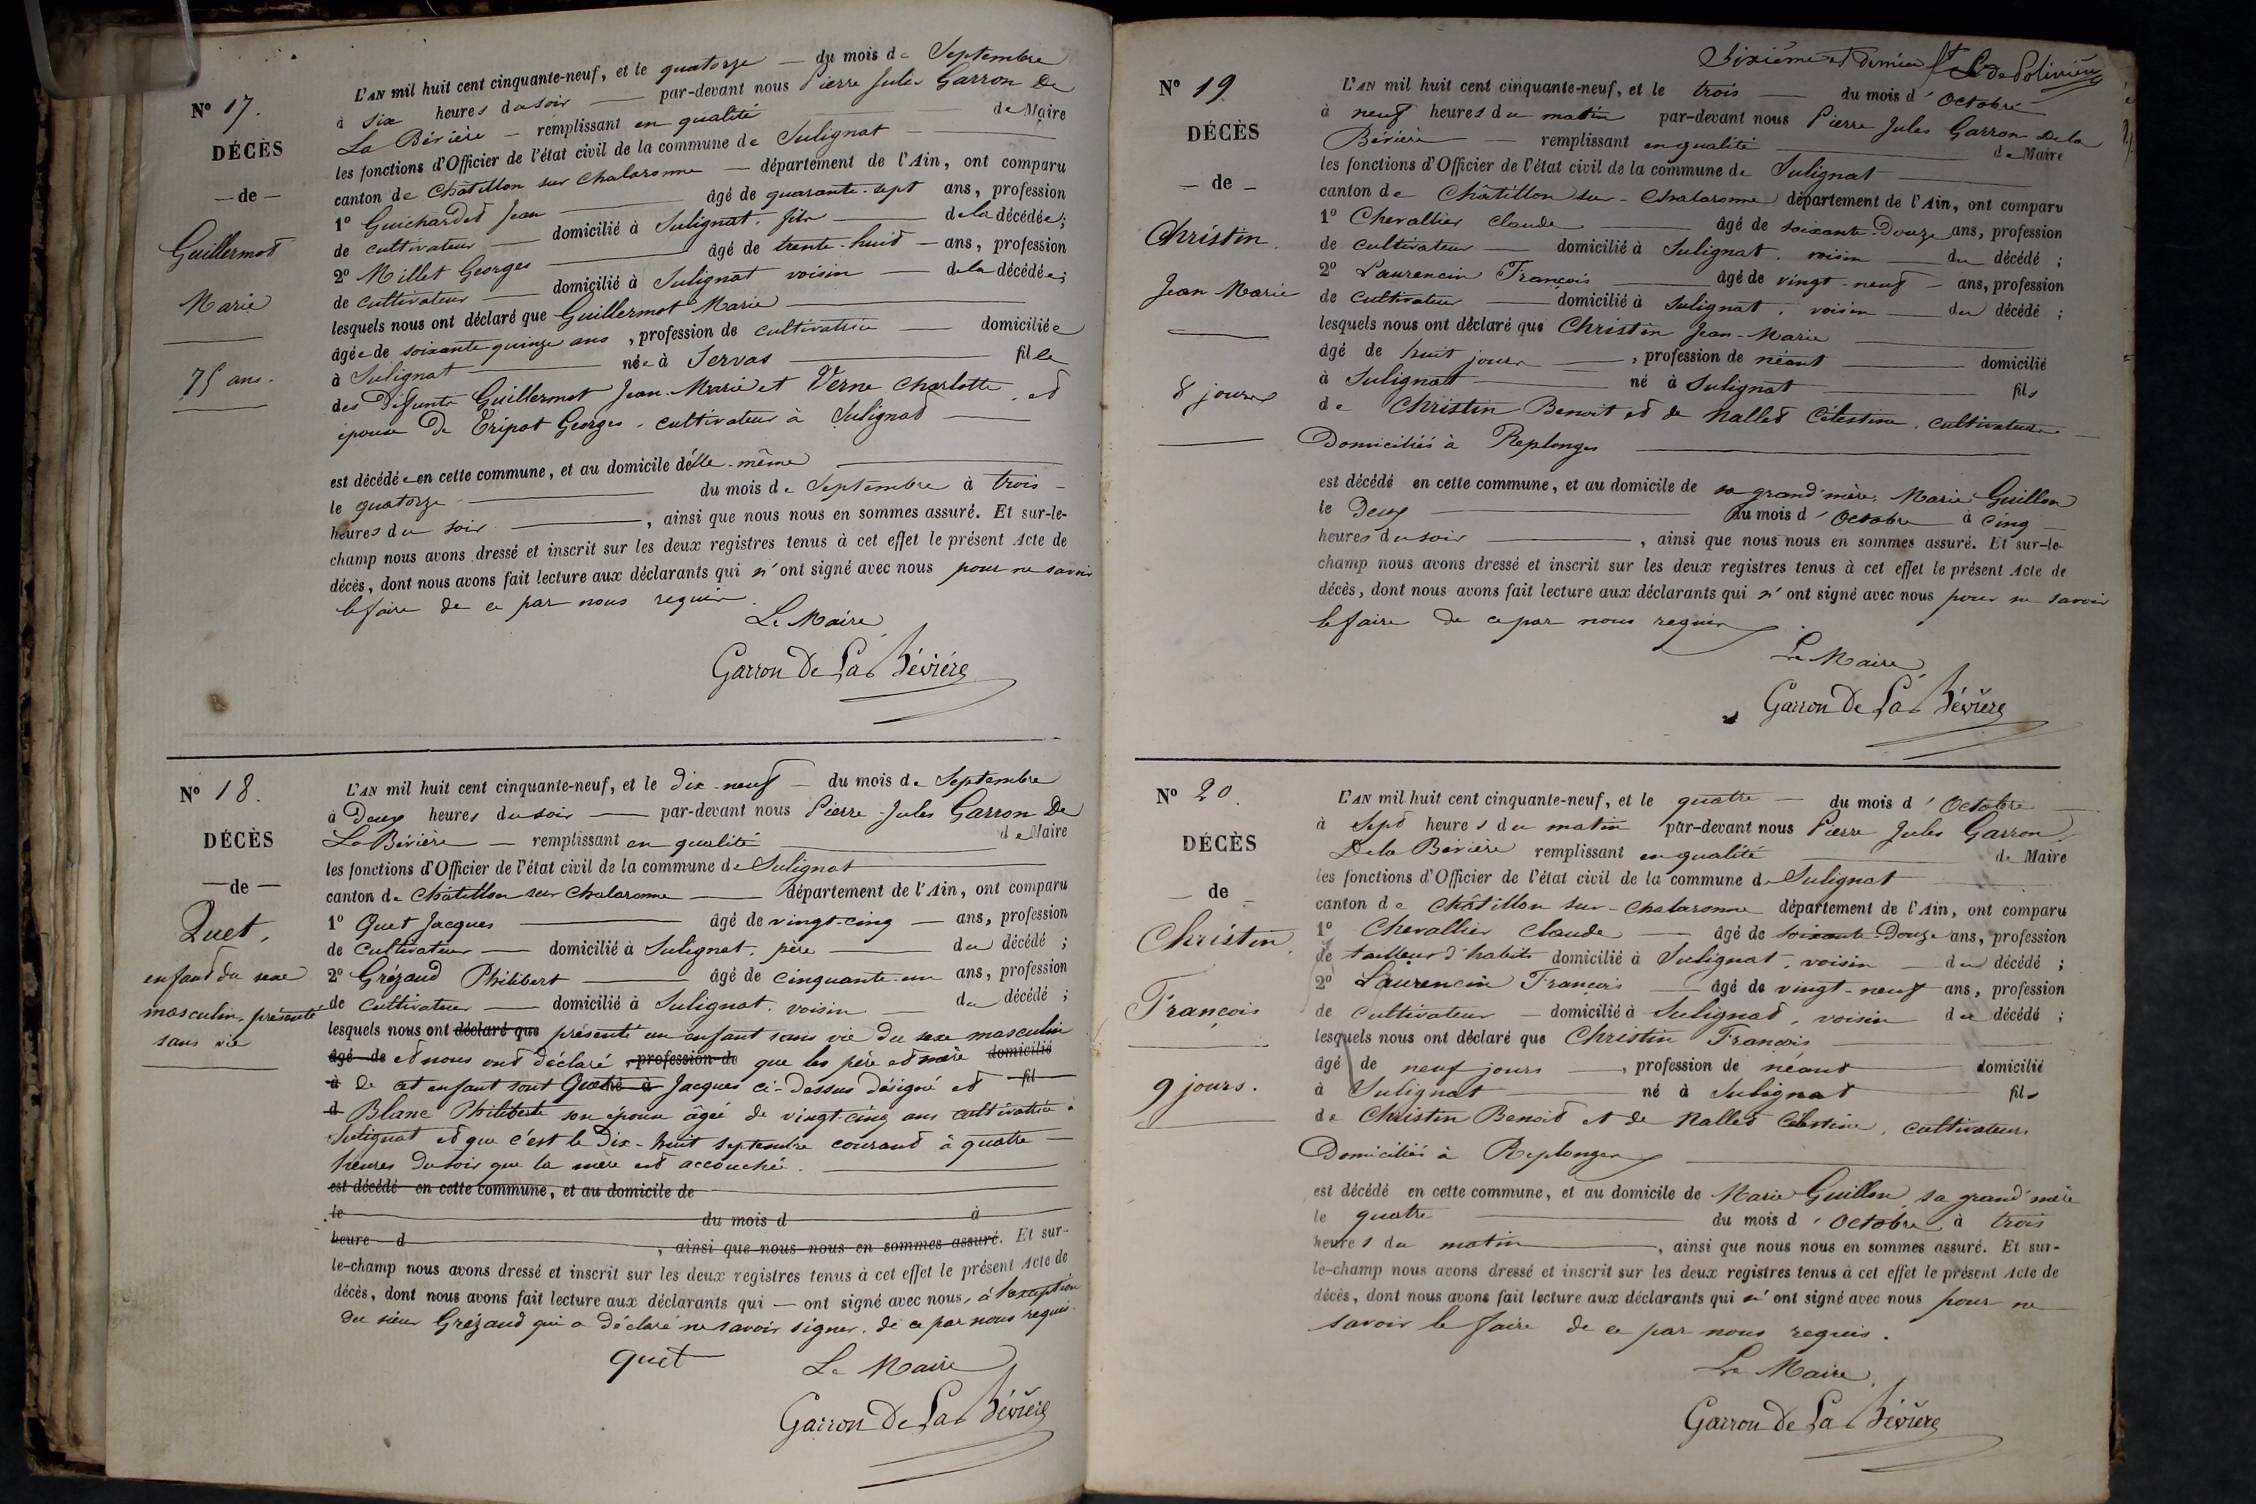 N° 17.
DÉCÈS
— de —
Guillermot
Marie
75 ans.
L'AN mil huit cent cinquante-neuf, et le quatorze — du mois de Septembre
à six heures du soir — par-devant nous Pierre Jules Garron De
La Bévière — remplissant en qualité de Maire
les fonctions d'Officier de l'état civil de la commune de Sulignat —
canton de Châtillon sur Chalaronne — département de l'Ain, ont comparu
1° Guichardet Jean — âgé de quarante-sept ans, profession
de cultivateur — domicilié à Sulignat, fils — de la décédée;
2° Millet Georges — âgé de trente-huit — ans, profession
de cultivateur — domicilié à Sulignat voisin — de la décédée;
lesquels nous ont déclaré que Guillermot Marie —
âgée de soixante quinze ans, profession de cultivatrice — domiciliée
à Sulignat — née à Servas — fille
des défunts Guillermot Jean-Marie et Verne Charlotte, et
épouse De Tripot Georges, cultivateur à Sulignat —
est décédée en cette commune, et au domicile d'elle-même —
le quatorze — du mois de Septembre à trois —
heures du soir —, ainsi que nous nous en sommes assuré. Et sur-le-
champ nous avons dressé et inscrit sur les deux registres tenus à cet effet le présent Acte de
décès, dont nous avons fait lecture aux déclarants qui n'ont signé avec nous pour ne savoir
le faire de ce par nous requis.
Le Maire
Garron De La Bévière
N° 18.
DÉCÈS
— de —
Quet,
enfant du sexe
masculin, présenté
sans vie
L'AN mil huit cent cinquante-neuf, et le dix-neuf — du mois de Septembre
à Deux heures du soir — par-devant nous Pierre-Jules Garron De
La Bévière — remplissant en qualité de Maire
les fonctions d'Officier de l'état civil de la commune de Sulignat
canton de Châtillon sur Chalaronne — département de l'Ain, ont comparu
1° Quet Jacques — âgé de vingt-cinq — ans, profession
de cultivateur — domicilié à Sulignat, père — du décédé;
2° Grézaud Philibert — âgé de cinquante-un ans, profession
de cultivateur — domicilié à Sulignat, voisin — du décédé;
lesquels nous ont déclaré que présenté un enfant sans vie du sexe masculin
âgé de et nous ont déclaré, profession de que les père et mère domicilié
à de cet enfant sont Quet né à Jacques ci-dessus désigné et fil
d Blanc Philiberte son épouse âgée de vingt-cinq ans cultivatrice à
Sulignat et que c'est le Dix-huit septembre courant à quatre —
heures du soir que la mère est accouchée. —
est décédé en cette commune, et au domicile de —
le — du mois d — à
heure d —, ainsi que nous nous en sommes assuré. Et sur-
le-champ nous avons dressé et inscrit sur les deux registres tenus à cet effet le présent Acte de
décès, dont nous avons fait lecture aux déclarants qui — ont signé avec nous, à l'exception
du sieur Grézaud qui a déclaré ne savoir signer, de ce par nous requis.
quet
Le Maire
Garron De La Bévière
Sixième et dernier
N° 19.
DÉCÈS
— de —
Christin
Jean Marie
8 jours
L'AN mil huit cent cinquante-neuf, et le trois — du mois d'Octobre
à neuf heures du matin par-devant nous Pierre Jules Garron De la
Bévière — remplissant en qualité — de Maire
les fonctions d'Officier de l'état civil de la commune de Sulignat —
canton de Châtillon sur-Chalaronne département de l'Ain, ont comparu
1° Chevallier Claude — âgé de soixante-Douze ans, profession
de cultivateur — domicilié à Sulignat, voisin — du décédé;
2° Laurencin François — âgé de vingt-neuf — ans, profession
de cultivateur — domicilié à Sulignat, voisin — du décédé;
lesquels nous ont déclaré que Christin Jean-Marie —
âgé de huit jours —, profession de néant — domicilié
à Sulignat — né à Sulignat — fils
de Christin Benoit et de Nallet Célestine, cultivateurs —
Domiciliés à Replonges —
est décédé en cette commune, et au domicile de sa grand'mère, Marie Guillon
le Deux — du mois d'Octobre à cinq —
heures du soir —, ainsi que nous nous en sommes assuré. Et sur-le-
champ nous avons dressé et inscrit sur les deux registres tenus à cet effet le présent Acte de
décès, dont nous avons fait lecture aux déclarants qui n'ont signé avec nous pour ne savoir
le faire de ce par nous requis
Le Maire
Garron De La Bévière
N° 20.
DÉCÈS
— de —
Christin
François
9 jours.
L'AN mil huit cent cinquante-neuf, et le quatre — du mois d'Octobre —
à Sept heures du matin par-devant nous Pierre Jules Garron
De la Bévière remplissant en qualité — de Maire
les fonctions d'Officier de l'état civil de la commune de Sulignat —
canton de Châtillon sur-Chalaronne département de l'Ain, ont comparu
1° Chevallier Claude — âgé de soixante-Douze ans, profession
de tailleur d'habits domicilié à Sulignat, voisin — du décédé;
2° Laurencin François — âgé de vingt-neuf ans, profession
de cultivateur — domicilié à Sulignat, voisin du décédé;
lesquels nous ont déclaré que Christin François —
âgé de neuf jours —, profession de néant — domicilié
à Sulignat — né à Sulignat — fils
de Christin Benoit et de Nallet Célestine, cultivateurs
Domiciliés à Replonges —
est décédé en cette commune, et au domicile de Marie Guillon, sa grand'mère
le quatre — du mois d'Octobre à trois
heures du matin —, ainsi que nous nous en sommes assuré. Et sur-
le-champ nous avons dressé et inscrit sur les deux registres tenus à cet effet le présent Acte de
décès, dont nous avons fait lecture aux déclarants qui n'ont signé avec nous pour ne
savoir le faire de ce par nous requis.
Le Maire
Garron De La Bévière